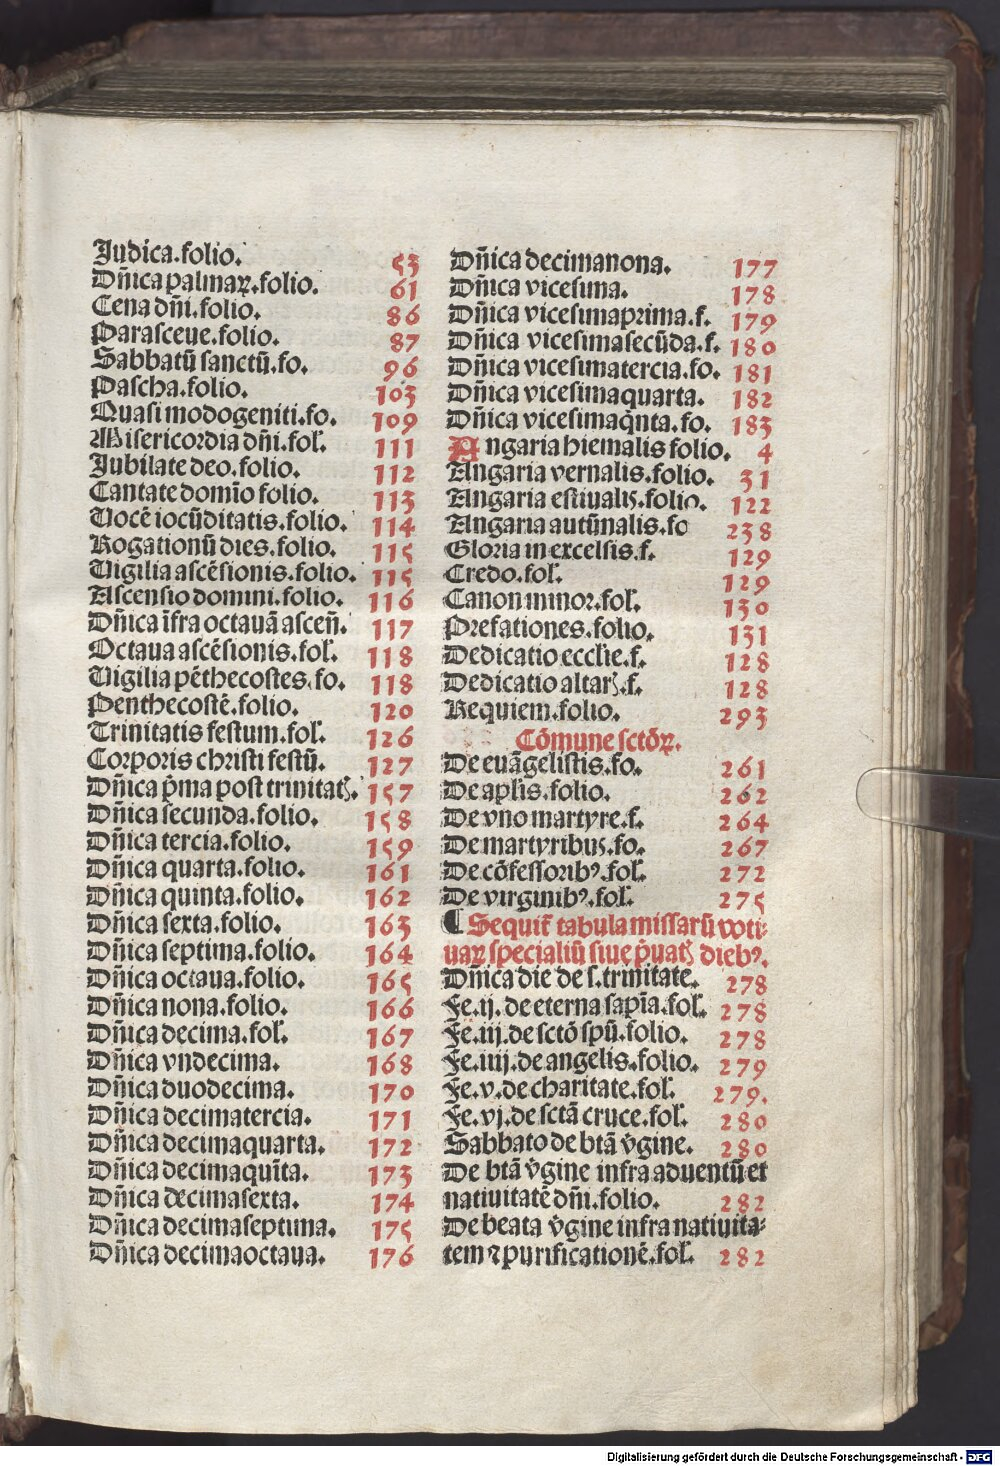 Judica.folio. 53
Dn̄ica palmaꝝ.folio. 61
Cena dn̄i.folio. 86
Parasceue.folio. 87
Sabbatū sanctū.fo. 96
Pascha.folio. 103
Quasi modogeniti.fo. 109
Misericordia dn̄i.fol. 111
Jubilate deo.folio. 112
Cantate domīo folio. 113
Uocē iocūditatis.folio. 114
Rogationū dies.folio. 115
Uigilia ascēsionis.folio. 115
Ascensio domini.folio. 116
Dn̄ica īfra octauā asceñ. 117
Octaua ascēsionis.fol. 118
Uigilia pēthecostes.fo. 118
Penthecostē.folio. 120
Trinitatis festum.fol. 126
Corporis christi festū. 127
Dn̄ica p̄ma post trinitatꝭ. 157
Dn̄ica secunda.folio. 158
Dn̄ica tercia.folio. 159
Dn̄ica quarta.folio. 161
Dn̄ica quinta.folio. 162
Dn̄ica sexta.folio. 163
Dn̄ica septima.folio. 164
Dn̄ica octaua.folio. 165
Dn̄ica nona.folio. 166
Dn̄ica decima.fol. 167
Dn̄ica vndecima. 168
Dn̄ica duodecima. 170
Dn̄ica decimatercia. 171
Dn̄ica decimaquarta. 172
Dn̄ica decimaquīta. 173
Dn̄ica decimasexta. 174
Dn̄ica decimaseptima. 175
Dn̄ica decimaoctaua. 176
Dn̄ica decimanona. 177
Dn̄ica vicesima. 178
Dn̄ica vicesimaprima.f. 179
Dn̄ica vicesimasecūda.f. 180
Dn̄ica vicesimatercia.fo. 181
Dn̄ica vicesimaquarta. 182
Dn̄ica vicesimaq̇nta.fo. 183
Angaria hiemalis folio. 4
Angaria vernalis.folio. 31
Angaria estiualꝭ.folio. 122
Angaria autūnalis.fo 238
Gloria in excelsis.f. 129
Credo.fol. 129
Canon minor.fol. 130
Prefationes.folio. 131
Dedicatio eccl̄ie.f. 128
Dedicatio altarꝭ.f. 128
Requiem.folio. 293
Cōmune sctōꝝ.
De euāgelistis.fo. 261
De apl̄is.folio. 262
De vno martyre.f. 264
De martyribuꝭ.fo. 267
De cōfessoribꝰ.fol. 272
De virginibꝰ.fol. 275
¶ Sequit̄ tabula missarū voti⸗
uaꝝ specialiū siue p̄uatꝭ diebꝰ.
Dn̄ica die de s.trinitate. 278
Fe.ij.de eterna sapīa.fol. 278
Fe.iij.de sctō spū.folio. 278
Fe.iiij.de angelis.folio. 279
Fe.v.de charitate.fol. 279.
Fe.vj.de sctā cruce.fol. 280
Sabbato de btā v̄gine. 280
De btā v̄gine infra aduentū et
natiuitatē dn̄i.folio. 282
De beata v̄gine infra natiuita⸗
tem ⁊ purificationē.fol. 282
Digitalisierung gefördert durch die Deutsche Forschungsgemeinschaft - DFG